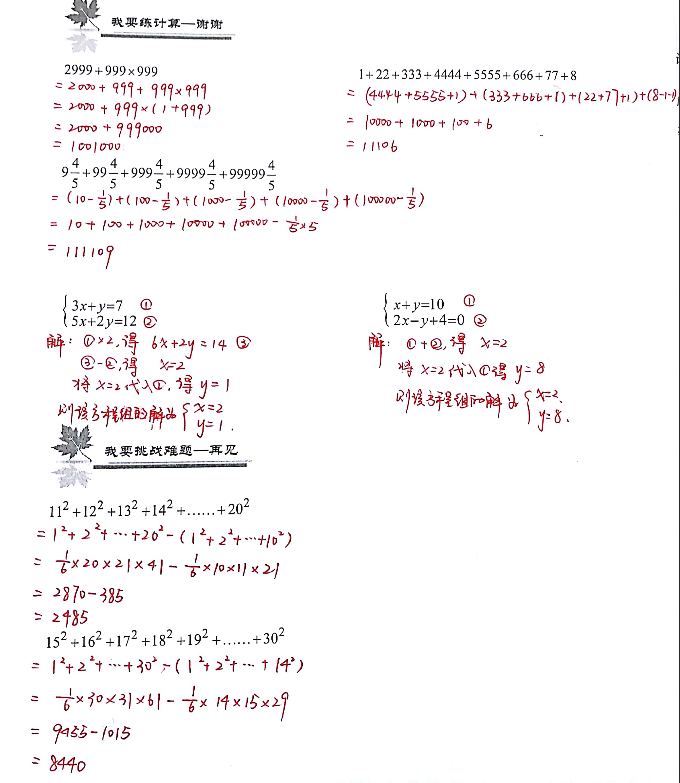 我要练计算—谢谢
2999+999×999
=2000+999+999×999
=2000+999×(1+999)
=2000+999000
=1001000
1+22+333+4444+5555+666+77+8
=(4444+5555+1)+(333+666+1)+(22+77+1)+(8-1-1)
=10000+1000+100+6
=11106
9 4/5+99 4/5+999 4/5+9999 4/5+99999 4/5
=(10-1/5)+(100-1/5)+(1000-1/5)+(10000-1/5)+(100000-1/5)
=10+100+1000+10000+100000-1/5×5
=111109
{3x+y=7 ①
5x+2y=12 ②
解:①×2,得 6x+2y=14 ③
③-②,得 x=2
将x=2代入①,得y=1
则该方程组的解为{x=2
y=1.
{x+y=10 ①
2x-y+4=0 ②
解:①+②,得 x=2
将x=2代入①得y=8
则该方程组的解为{x=2.
y=8.
我要挑战难题—再见
11²+12²+13²+14²+……+20²
=1²+2²+…+20²-(1²+2²+…+10²)
=1/6×20×21×41-1/6×10×11×21
=2870-385
=2485
15²+16²+17²+18²+19²+……+30²
=1²+2²+…+30²-(1²+2²+…+14²)
=1/6×30×31×61-1/6×14×15×29
=9455-1015
=8440